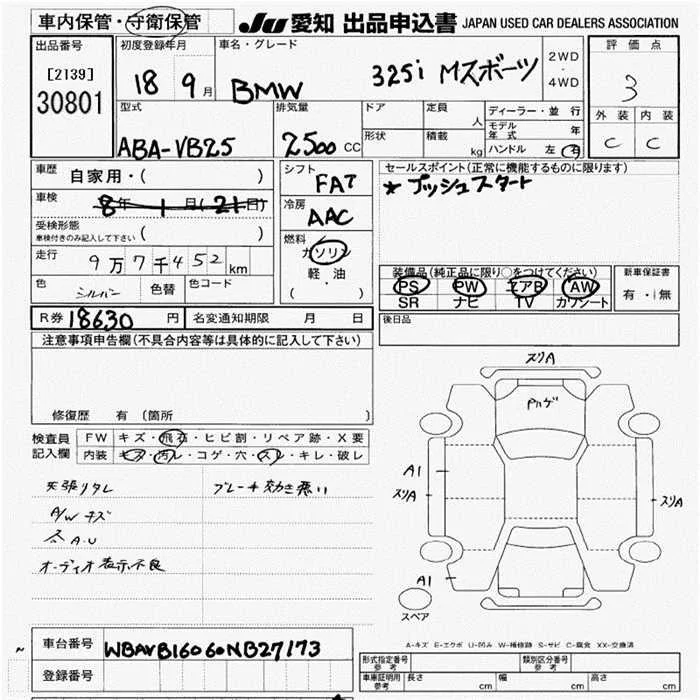 車内保管・守衛保管
JU 愛知 出品申込書 JAPAN USED CAR DEALERS ASSOCIATION
出品番号
[2139]
30801
初度登録年月
18 9月
車名・グレード
BMW 325i Mスポーツ
2WD
・
4WD
評価点
3
外装 内装
C C
型式
ABA-VB25
排気量
2500 CC
ドア
形状
定員
人
積載
kg
ディーラー・並 行
モデル年式 年
ハンドル 左 右
車歴
自家用・( )
車検
8年 1月(21日)
受検形態
車検付きのみ記入して下さい ( )
走行
9万7千452km
色
シルバー
色替
色コード
シフト
FAT
冷房
AAC
燃料
ガソリン
軽・油
( )
セールスポイント(正常に機能するものに限ります)
★プッシュスタート
装備品(純正品に限り○をつけてください)
PS PW エアB AW
SR ナビ TV カワシート
新車保証書
有・無
R券 18630 円
名変通知期限 月 日
後日品
注意事項申告欄(不具合内容等は具体的に記入して下さい)
修復歴 有 (箇所 )
検査員記入欄
FW キズ・飛石・ヒビ割・リペア跡・X要
内装 キズ・汚レ・コゲ・穴・スレ・キレ・破レ
天張りタレ
ブレーキ効き悪い
A/W キズ
各A.U
オーディオ表示不良
スリA
Pハゲ
A1
スリA
スリA
A1
スペア
A-キズ E-エクボ U-凹み W-補修跡 S-サビ C-腐食 XX-交換済
車台番号
WBAVB16060NB27173
登録番号
形式指定番号
参考
類別区分番号
参考
車庫証明用
参考
長さ cm
幅 cm
高さ cm